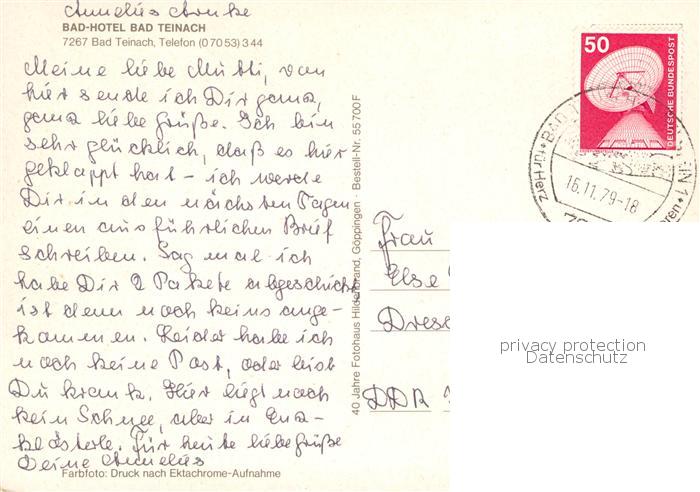 Annelies Arnke
BAD-HOTEL BAD TEINACH
7267 Bad Teinach, Telefon (0 70 53) 3 44
Meine liebe Mutti, von
hier sende ich Dir ganz,
ganz liebe Grüße. Ich bin
sehr glücklich, daß es hier
geklappt hat – ich werde
Dir in den nächsten Tagen
einen ausführlichen Brief
schreiben. Sag mal ich
habe Dir 2 Pakete abgeschickt
ist denn noch keins ange-
kommen. Leider habe ich
noch keine Post, oder bist
Du krank. Hier liegt noch
kein Schnee, aber in Enz-
klösterle. Für heute liebe Grüße
Deine Annelies
Farbfoto: Druck nach Ektachrome-Aufnahme
40 Jahre Fotohaus Hildenbrand, Göppingen · Bestell-Nr. 55 700 F
50
DEUTSCHE BUNDESPOST
BAD
IN 1
16.11.79-18
für Herz
Frau
Else
Dresd
DDR
privacy protection
Datenschutz